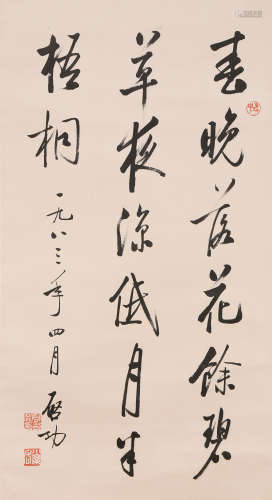 春晚落花餘碧
草夜涼低月半
梧桐
一九八三年四月 啓功